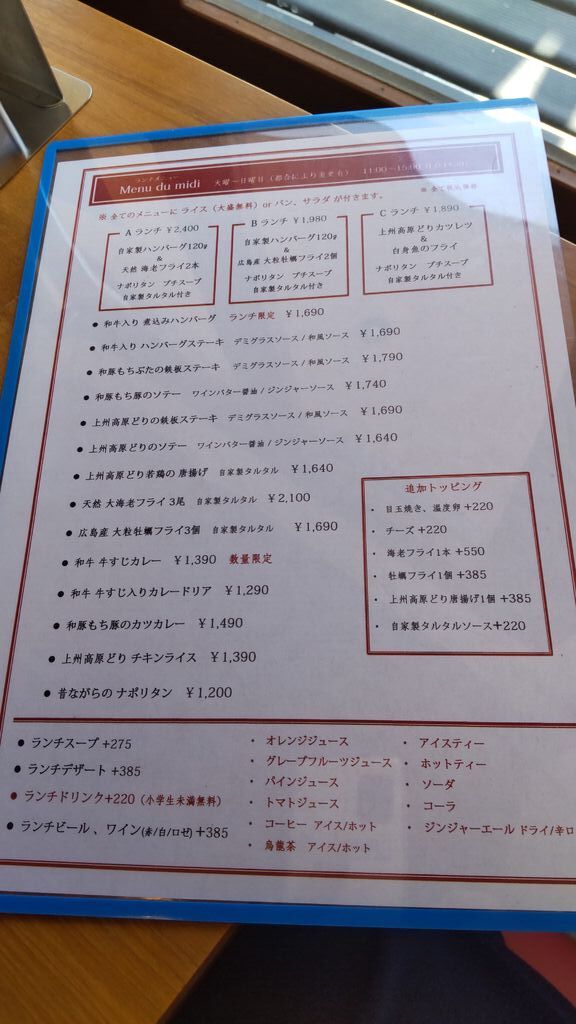 ランチメニュー
Menu du midi 火曜～日曜日（都合により変更も） 11:00～15:00
※ 全て税込価格
※ 全てのメニューに ライス（大盛無料）or パン、サラダ が付きます。
A ランチ ￥2,400
自家製ハンバーグ120g
&
天然 海老フライ2本
ナポリタン プチスープ
自家製タルタル付き
B ランチ ￥1,980
自家製ハンバーグ120g
&
広島産 大粒牡蠣フライ2個
ナポリタン プチスープ
自家製タルタル付き
C ランチ ￥1,890
上州高原どりカツレツ
&
白身魚のフライ
ナポリタン プチスープ
自家製タルタル付き
● 和牛入り 煮込みハンバーグ ランチ限定 ￥1,690
● 和牛入り ハンバーグステーキ デミグラスソース / 和風ソース ￥1,690
● 和豚もちぶたの鉄板ステーキ デミグラスソース / 和風ソース ￥1,790
● 和豚もち豚のソテー ワインバター醤油 / ジンジャーソース ￥1,740
● 上州高原どりの鉄板ステーキ デミグラスソース / 和風ソース ￥1,690
● 上州高原どりのソテー ワインバター醤油 / ジンジャーソース ￥1,640
● 上州高原どり若鶏の 唐揚げ 自家製タルタル ￥1,640
● 天然 大海老フライ 3尾 自家製タルタル ￥2,100
● 広島産 大粒牡蠣フライ3個 自家製タルタル ￥1,690
● 和牛 牛すじカレー ￥1,390 数量限定
● 和牛 牛すじ入りカレードリア ￥1,290
● 和豚もち豚のカツカレー ￥1,490
● 上州高原どり チキンライス ￥1,390
● 昔ながらの ナポリタン ￥1,200
追加トッピング
・ 目玉焼き、温度卵 +220
・ チーズ +220
・ 海老フライ1本 +550
・ 牡蠣フライ1個 +385
・ 上州高原どり唐揚げ1個 +385
・ 自家製タルタルソース+220
● ランチスープ +275
● ランチデザート +385
● ランチドリンク+220（小学生未満無料）
● ランチビール 、ワイン(赤/白/ロゼ) +385
・ オレンジジュース
・ グレープフルーツジュース
・ パインジュース
・ トマトジュース
・ コーヒー アイス/ホット
・ 烏龍茶 アイス/ホット
・ アイスティー
・ ホットティー
・ ソーダ
・ コーラ
・ ジンジャーエール ドライ/辛口